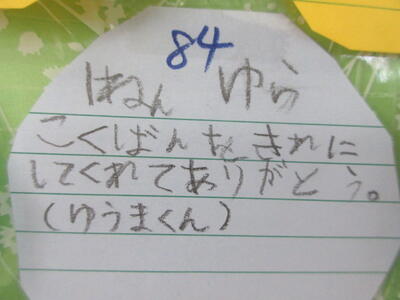 84
はねん ゆら
こくばんをきれに
してくれてありがとう。
(ゆうまくん)